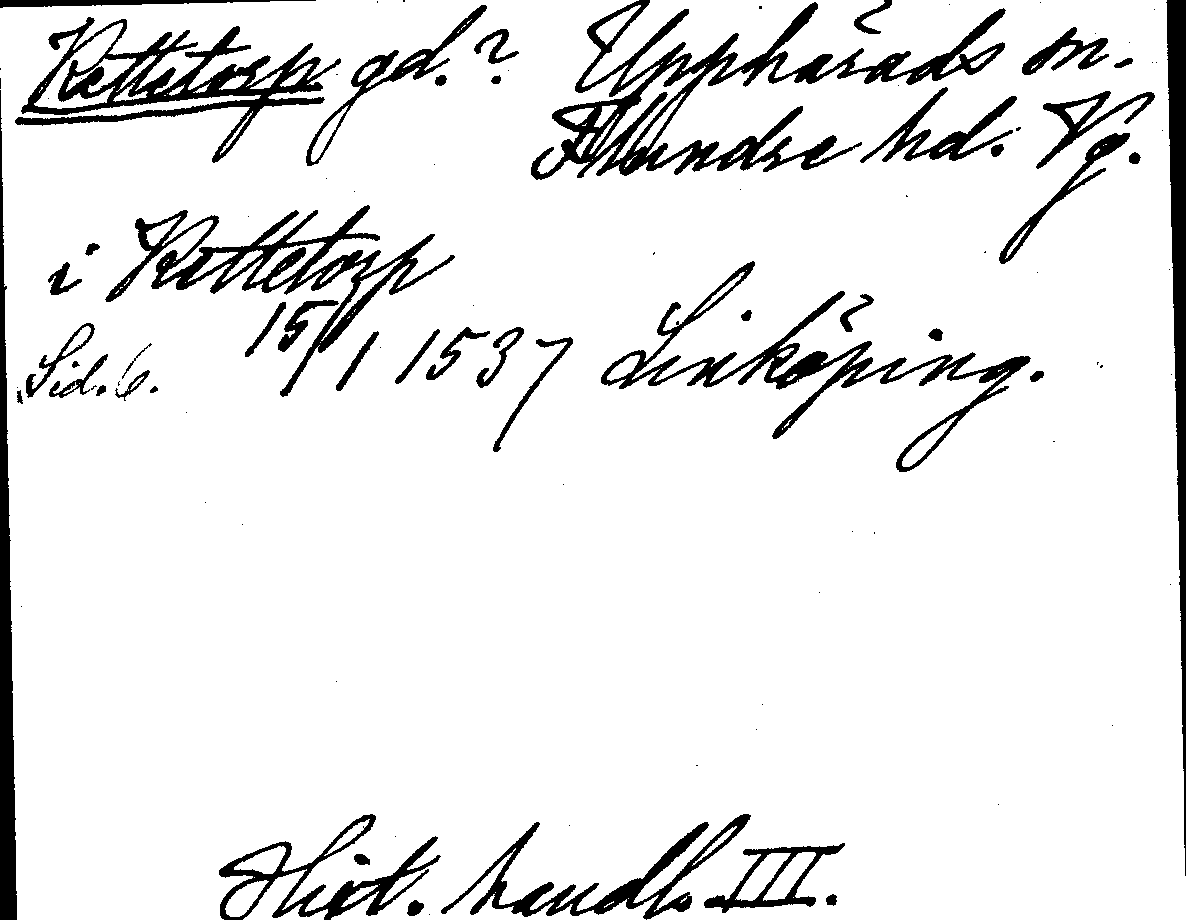 Kettetorp gd.? Upphärads sn.
Flundre hd. Vg.
i Kettetorp
Sid. 6. 15/1 1537 Linköping.
Hist. handl. III.